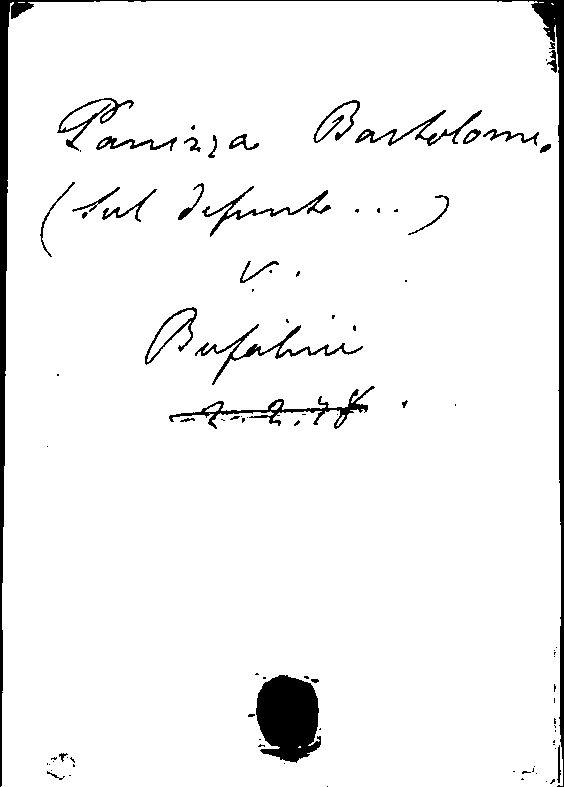 Panizza Bartolome.
(Sul defunto ...)
V.
Bufalini
2.2.78.